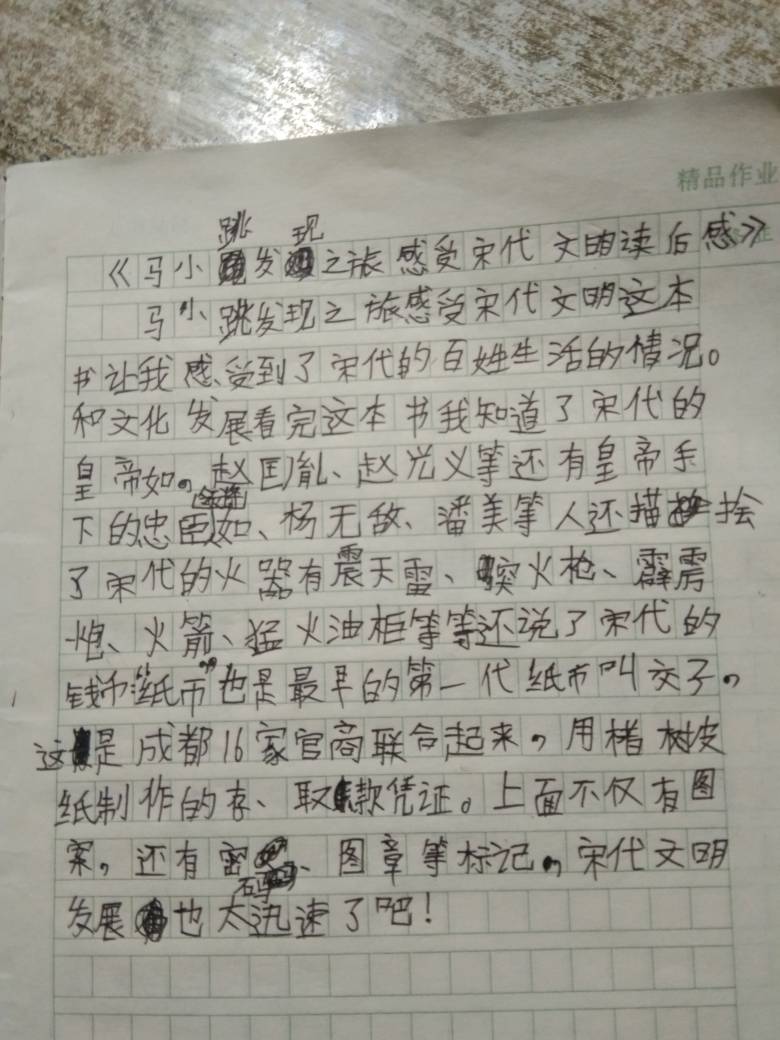 精品作业
《马小跳发现之旅感受宋代文明读后感》
马小跳发现之旅感受宋代文明这本
书让我感受到了宋代的百姓生活的情况。
和文化发展看完这本书我知道了宋代的
皇帝如。赵匡胤、赵光义等还有皇帝手
下的忠臣如、杨无敌、潘美等人还描绘
了宋代的火器有震天雷、突火枪、霹雳
炮、火箭、猛火油柜等等还说了宋代的
钱币“纸币”也是最早的第一代纸币叫交子。
这是成都16家官商联合起来，用楮树皮
纸制作的存、取款凭证。上面不仅有图
案，还有密码、图章等标记。宋代文明
发展也太迅速了吧！